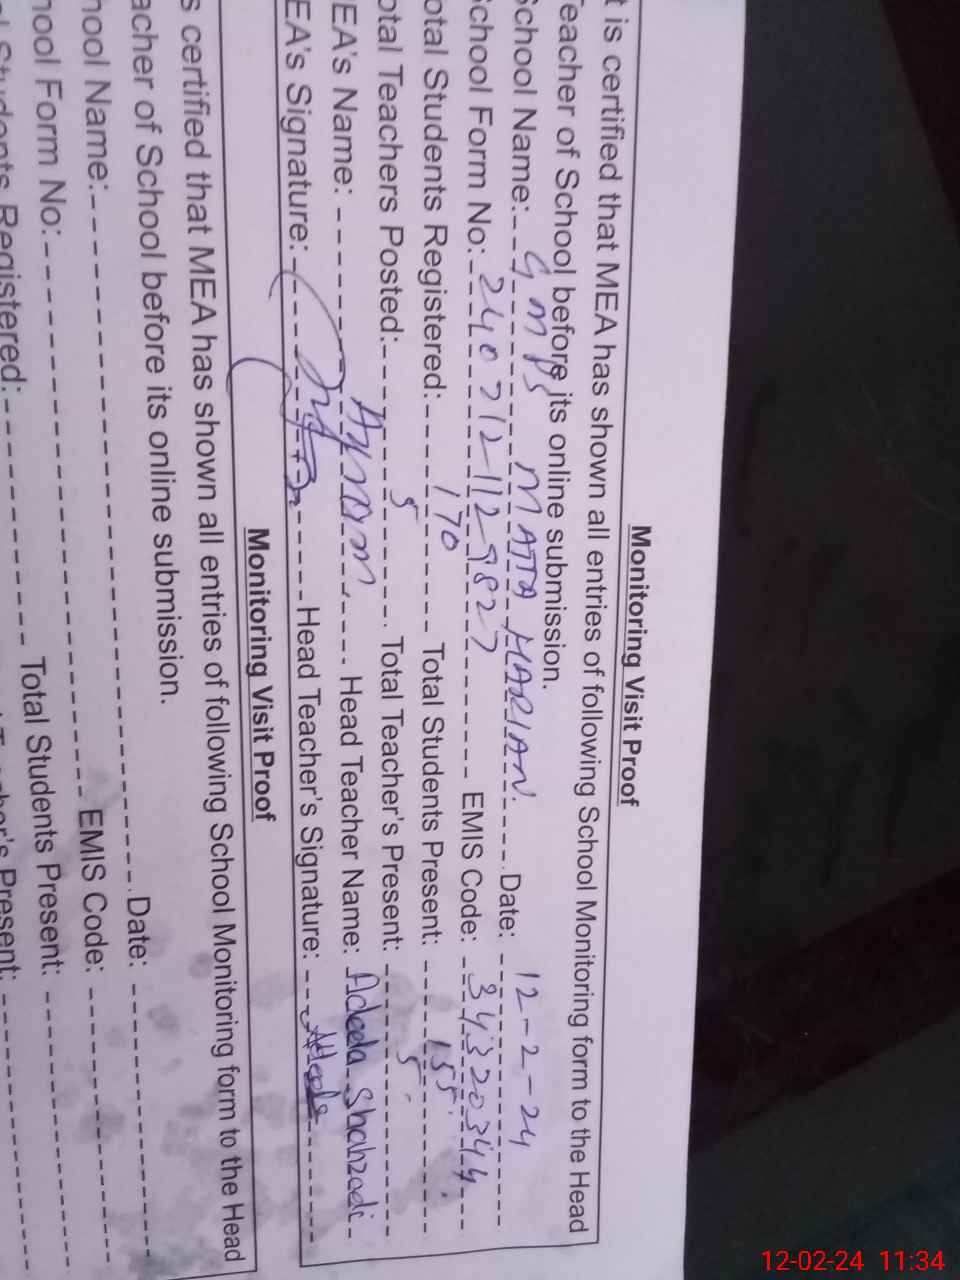 Monitoring Visit Proof
t is certified that MEA has shown all entries of following School Monitoring form to the Head
eacher of School before its online submission.
School Name: GMPS MATTA HARIAN. Date: 12-2-24
School Form No: 2402121129827 EMIS Code: 34320344
otal Students Registered: 170 Total Students Present: 155
otal Teachers Posted: 5 Total Teacher's Present: 5
EA's Name: Head Teacher Name: Adeela Shahzadi
EA's Signature: Head Teacher's Signature:
Monitoring Visit Proof
s certified that MEA has shown all entries of following School Monitoring form to the Head
acher of School before its online submission.
hool Name: Date:
hool Form No: EMIS Code:
Students Registered: Total Students Present:
Present:
12-02-24 11:34